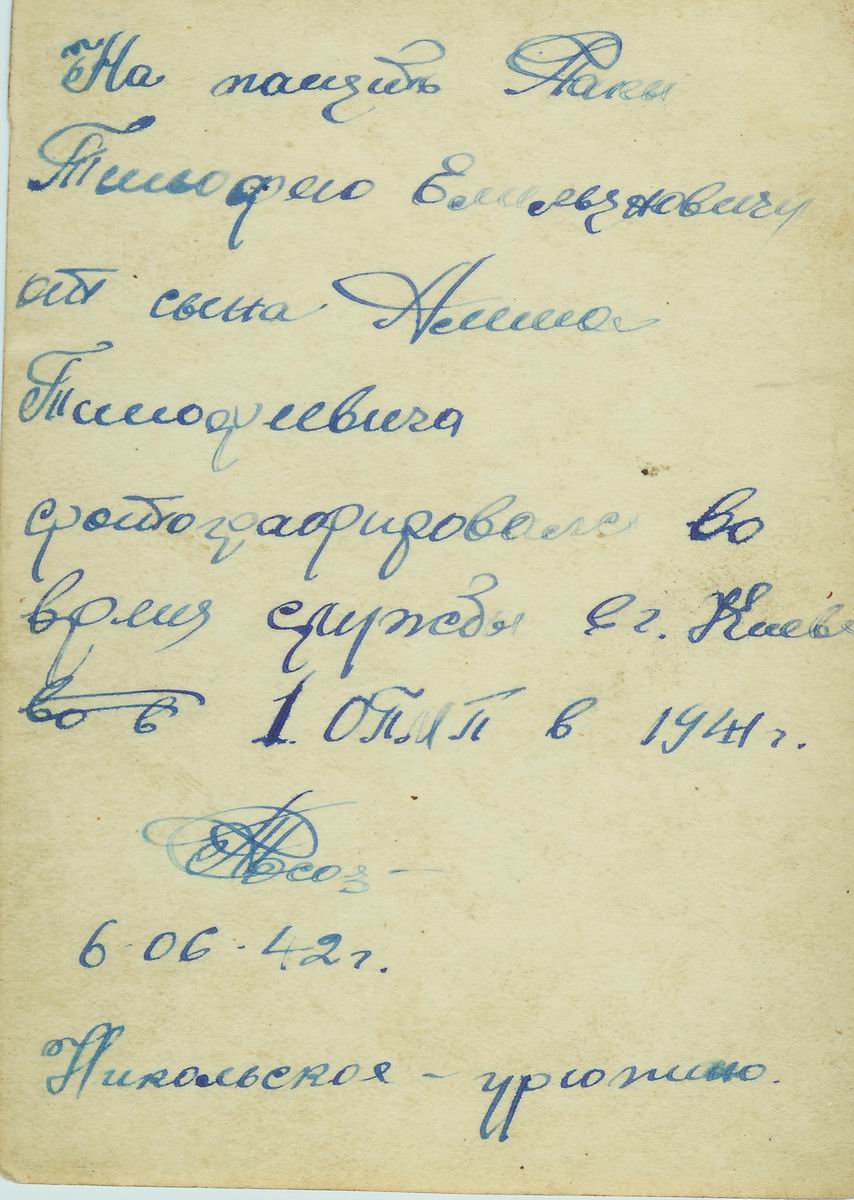 На память Папы
Тимофею Емельяновичу
от сына
Тимофеевича
фотографировался во
время службы в г. Киеве
во в 1. ОПМП в 1941 г.
6-06-42 г.
Никольское - урюпино.